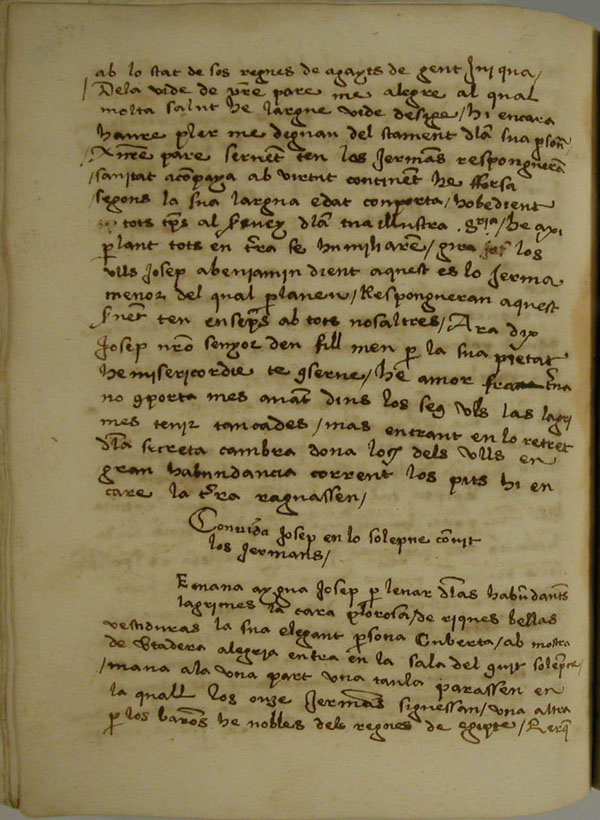 ab lo stat de sos regnes de agayts de gent Iniqua /
/ Dela vide de vr̃e pare me alegre al qual
molta salut he largue vide desige / hi encara
haure pler me dignau del stament dla sua p̱soñ
/ Vr̃e pare seruent teu los Jermãs respongueren
/ sanitat acõpaya ab virtut continent he fforsa
segons la sua largua edat comporta / hobedient
tots tp̃s al seruey dla tua illustra gr̃ia / he axi
p̱lant tots en tr̃ra se humiliaren / gira los
vlls Josep a benjamin dient aquest es lo Jerma
menor del qual p̱laueu / Respongueran aquest
seruẽt teu ensẽps ab tots nosaltres / Ara dix
Josep nr̃o senyor deu fill meu p̱ la sua pietat
he misericordie te ꝯserue / he amor fraterna
no ꝯporta mes auãt dins los seus vlls las lagri
mes tenir tancades / mas entrant en lo retret
dla secreta cambra dona loch dels vlls en
gran habundancia corrent los pits hi en
care la tr̃ra raguassen /
Conuida Josep en lo solepne cõuit
los Jermans /
E mana aygua Josep p̱ leuar dlas habũdants
lagrimes la cara plorosa / de riques bellas
vestiduras la sua elegant p̱sona cuberta / ab mostra
de vtadera alegria entra en la sala del ꝯuit solepne /
/ mana a la vna part vna taula parassen en
la quall los onze Jermãs siguessan / vna altra
p̱ los barõs he nobles dels regnes de egipte /